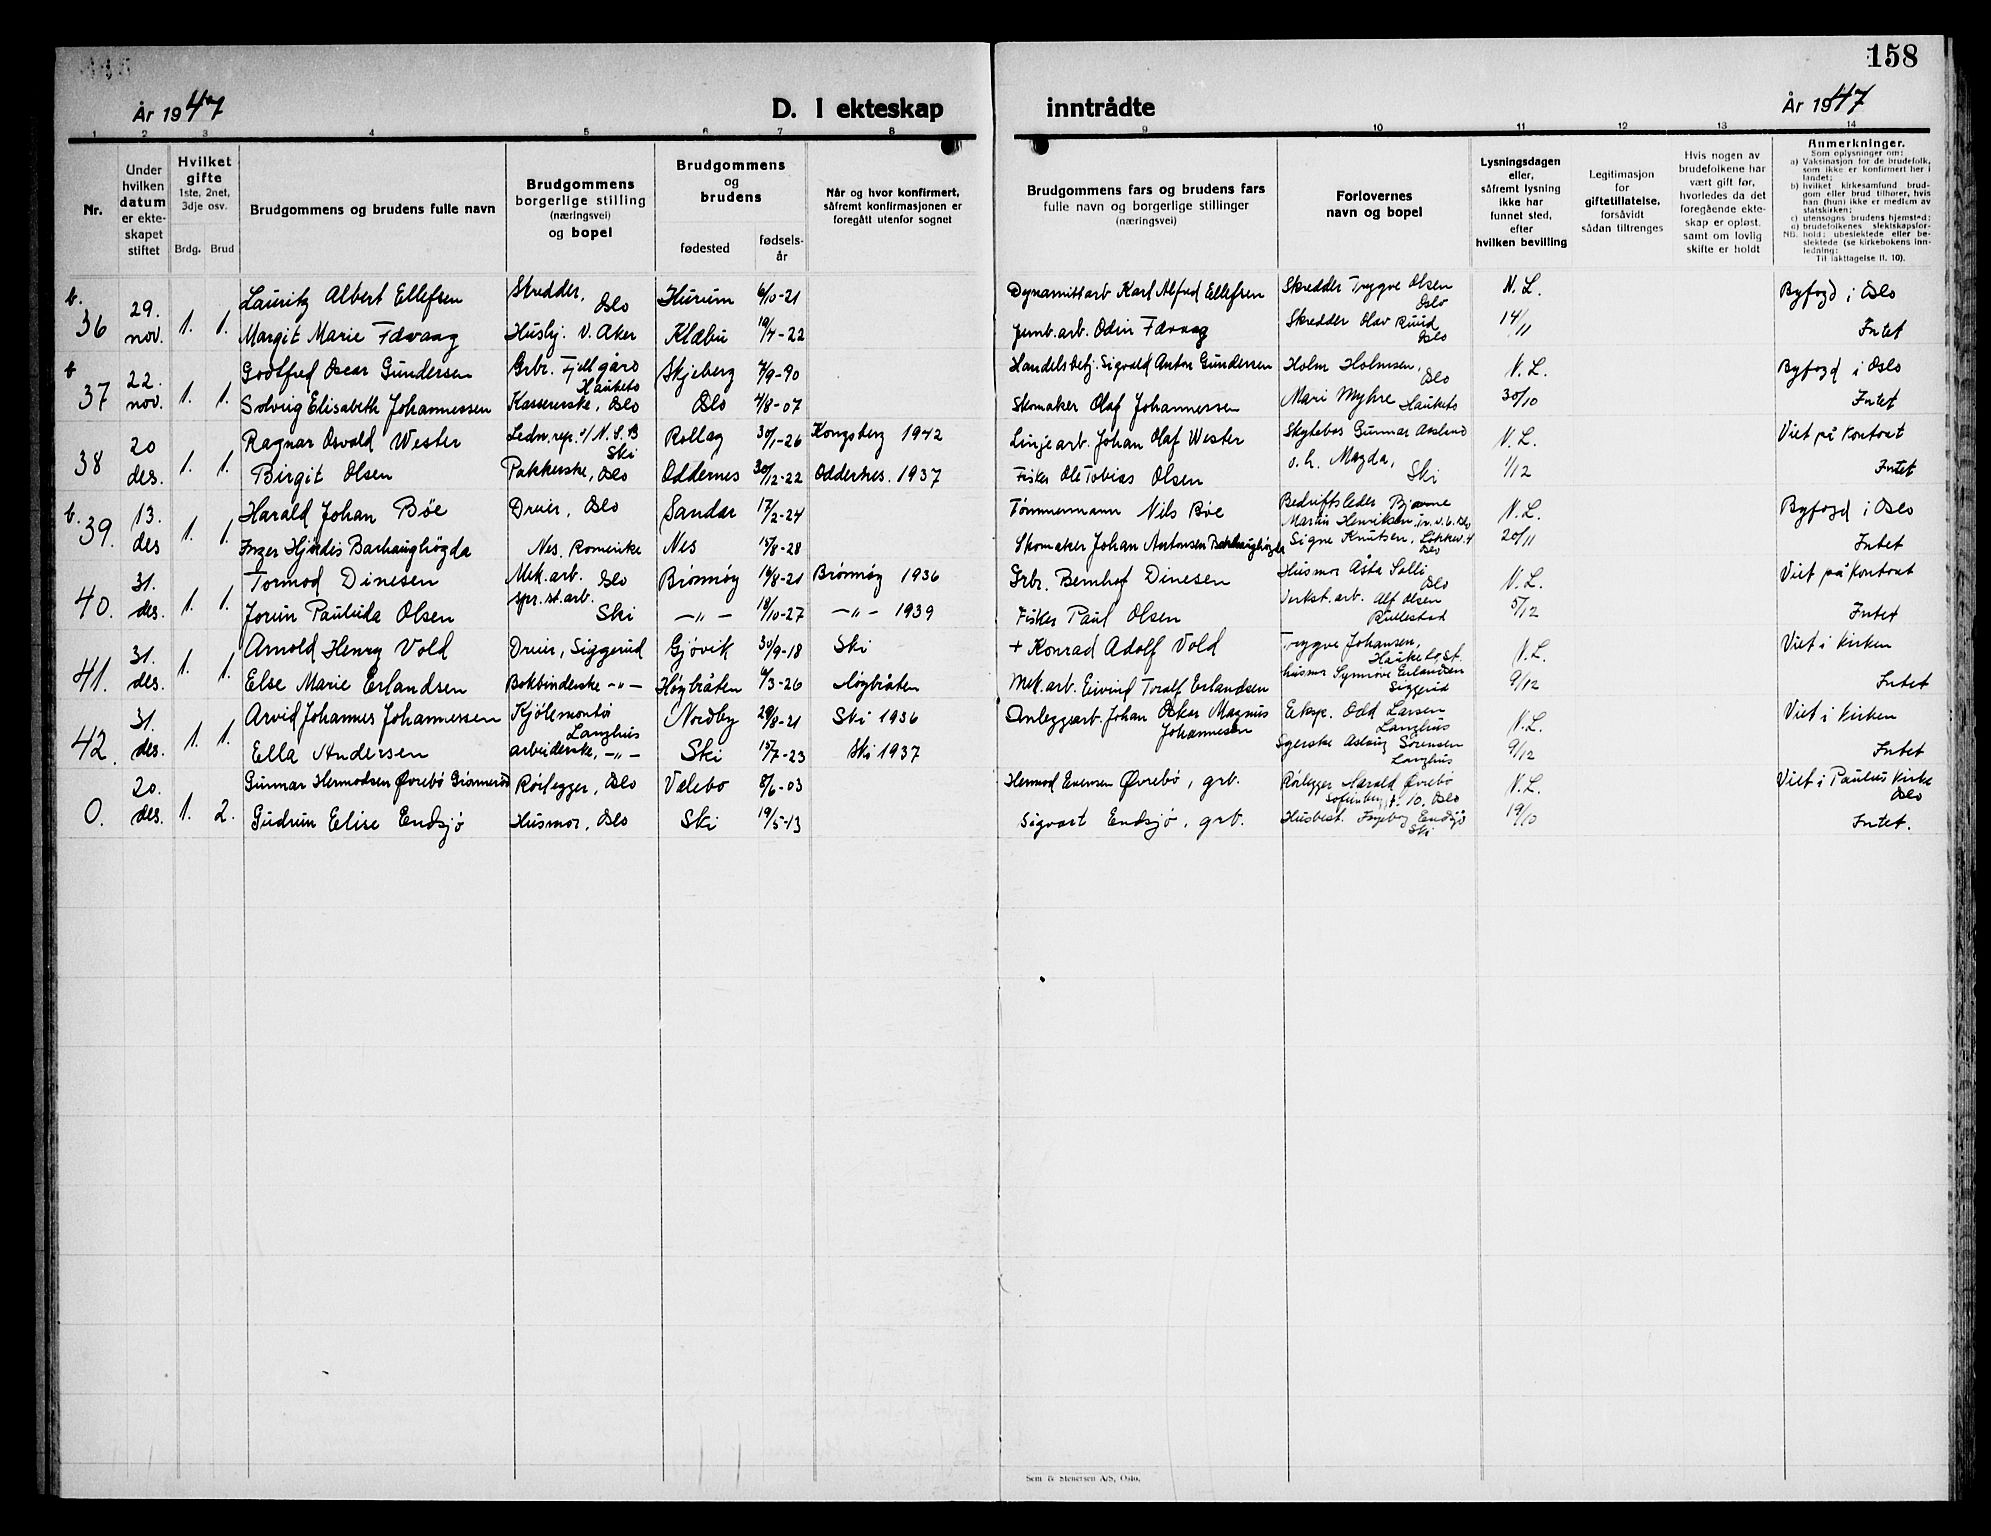 158
År 1947
D. I ekteskap inntrådte
År 1947
1 2 3 4 5 6 7 8 9 10 11 12 13 14
Nr.
Under hvilken datum er ekteskapet stiftet
Hvilket gifte
1ste, 2net, 3dje osv.
Brdg. Brud
Brudgommens og brudens fulle navn
Brudgommens borgerlige stilling (næringsvei) og bopel
Brudgommens og brudens
fødested
fødselsår
Når og hvor konfirmert, såfremt konfirmasjonen er foregått utenfor sognet
Brudgommens fars og brudens fars fulle navn og borgerlige stillinger (næringsvei)
Forlovernes navn og bopel
Lysningsdagen eller, såfremt lysning ikke har funnet sted, efter hvilken bevilling
Legitimasjon for giftetillatelse, forsåvidt sådan tiltrenges
Hvis nogen av brudefolkene har vært gift før, hvorledes da det foregående ekteskap er opløst, samt om lovlig skifte er holdt
Anmerkninger.
Som oplysninger om:
a) Vaksinasjon for de brudefolk, som ikke er konfirmert her i landet;
b) hvilket kirkesamfund brudgom eller brud tilhører, hvis han (hun) ikke er medlem av statskirken;
c) utensogns brudens hjemsted;
d) brudefolkenes slektskapsforhold: ubeslektede eller beslektede (se kirkebokens innledning:
NB.
Til iakttagelse II. 10).
b. 36 29. nov. 1. 1. Lauritz Albert Ellefsen Skredder, Oslo Hurum 6/10-21 Dynamittarb Karl Alfred Ellefsen Skredder Trygve Olsen Oslo N. L. Byfogd i Oslo
Margit Marie Færaag Husbj. V. Aker Klæbu 19/7-22 Jernb.arb. Odin Færaag Skredder Olav Ruud Oslo 14/11 Intet
b 37 22. nov. 1. 1. Godtfred Oscar Gundersen Grbr. Fjellgård Haukets Skjeberg 7/9-90 Handelsbetj. Sigvald Anton Gundersen Holm Holmsen, Oslo N. L. Byfogd i Oslo
Solveig Elisabeth Johannessen Kassererske, Oslo Oslo 4/8-07 Skomaker Olaf Johannessen Mari Myhre Haukets 30/10 Intet
38 20 des. 1. 1. Ragnar Osvald Wester Ledn.rep. v/ N.S.B Ski Rollag 30/1-26 Kongsberg 1942 Linjearb. Johan Olaf Wester Skytebas Gunnar Aasland N. L. Viet på kontoret
Birgit Olsen Pakkerske, Oslo Oddernes 30/12-22 Oddernes. 1937 Fisker Ole Tobias Olsen o. h. Magda, Ski 1/12 Intet
b. 39. 13. des 1. 1. Harald Johan Bøe Dreier, Oslo Sandar 17/2-24 Tømmermann Nils Bøe Bedriftsleder Bjarne Martin Henriksen N. L. Byfogd i Oslo
Inger Hjørdis Barhaughøgda Nes, Romerike Nes 15/8-28 Skomaker Johan Antonsen Barhaughøgda Signe Knutsen, Løkkev. 4 Oslo 20/11 Intet
40. 31. des. 1. 1. Tormod Dinesen Mek.arb. Oslo Brønnøy 14/8-21 Brønnøy 1936 Grbr. Bernhof Dinesen Husmor Åsta Solli Oslo N. L. Viet på kontoret
Jorun Paulida Olsen spr.st.arb. Ski —"— 18/10-27 —"— 1939 Fisker Paul Olsen Verkst.arb. Alf Olsen Rullestad 5/12 Intet
41. 31. des. 1. 1. Arnold Henry Vold Dreier, Siggerud Gjøvik 30/9-18 Ski + Konrad Adolf Vold Trygve Johansen, Hauketo St. N. L. Viet i kirken
Else Marie Erlandsen Bokbinderske —"— Høgbråten 6/3-26 Høgbråten Mek.arb. Eivind Toralf Erlandsen husmor Synnøve Erlandsen Siggerud 9/12 Intet
42. 31. des. 1. 1. Arvid Johannes Johannessen Kjølemontø Langhus Nordby 29/8-21 Ski 1936 Anleggsarb. Johan Oskar Magnus Johannessen Eksp. Odd Larsen Langhus N. L. Viet i kirken
Ella Andersen arbeiderske, —"— Ski 15/7-23 Ski 1937 Syerske Aslaug Sørensen Langhus 9/12 Intet
0. 20. des. 1. 2. Gunnar Hermodsen Øvrebø Grønnerød Rørlegger, Oslo Valebø 8/6-03 Hermod Evensen Øvrebø, grb. Rørlegger Harald Øvrebø Sofienberg gt. 10, Oslo N. L. Viet i Paulus kirke Oslo
Gudrun Elise Endsjø Husmor, Oslo Ski 19/5-13 Sigvart Endsjø, grb. Husbest. Ingeborg Endsjø Ski 19/10 Intet.
Sem & Stenersen A/S, Oslo.